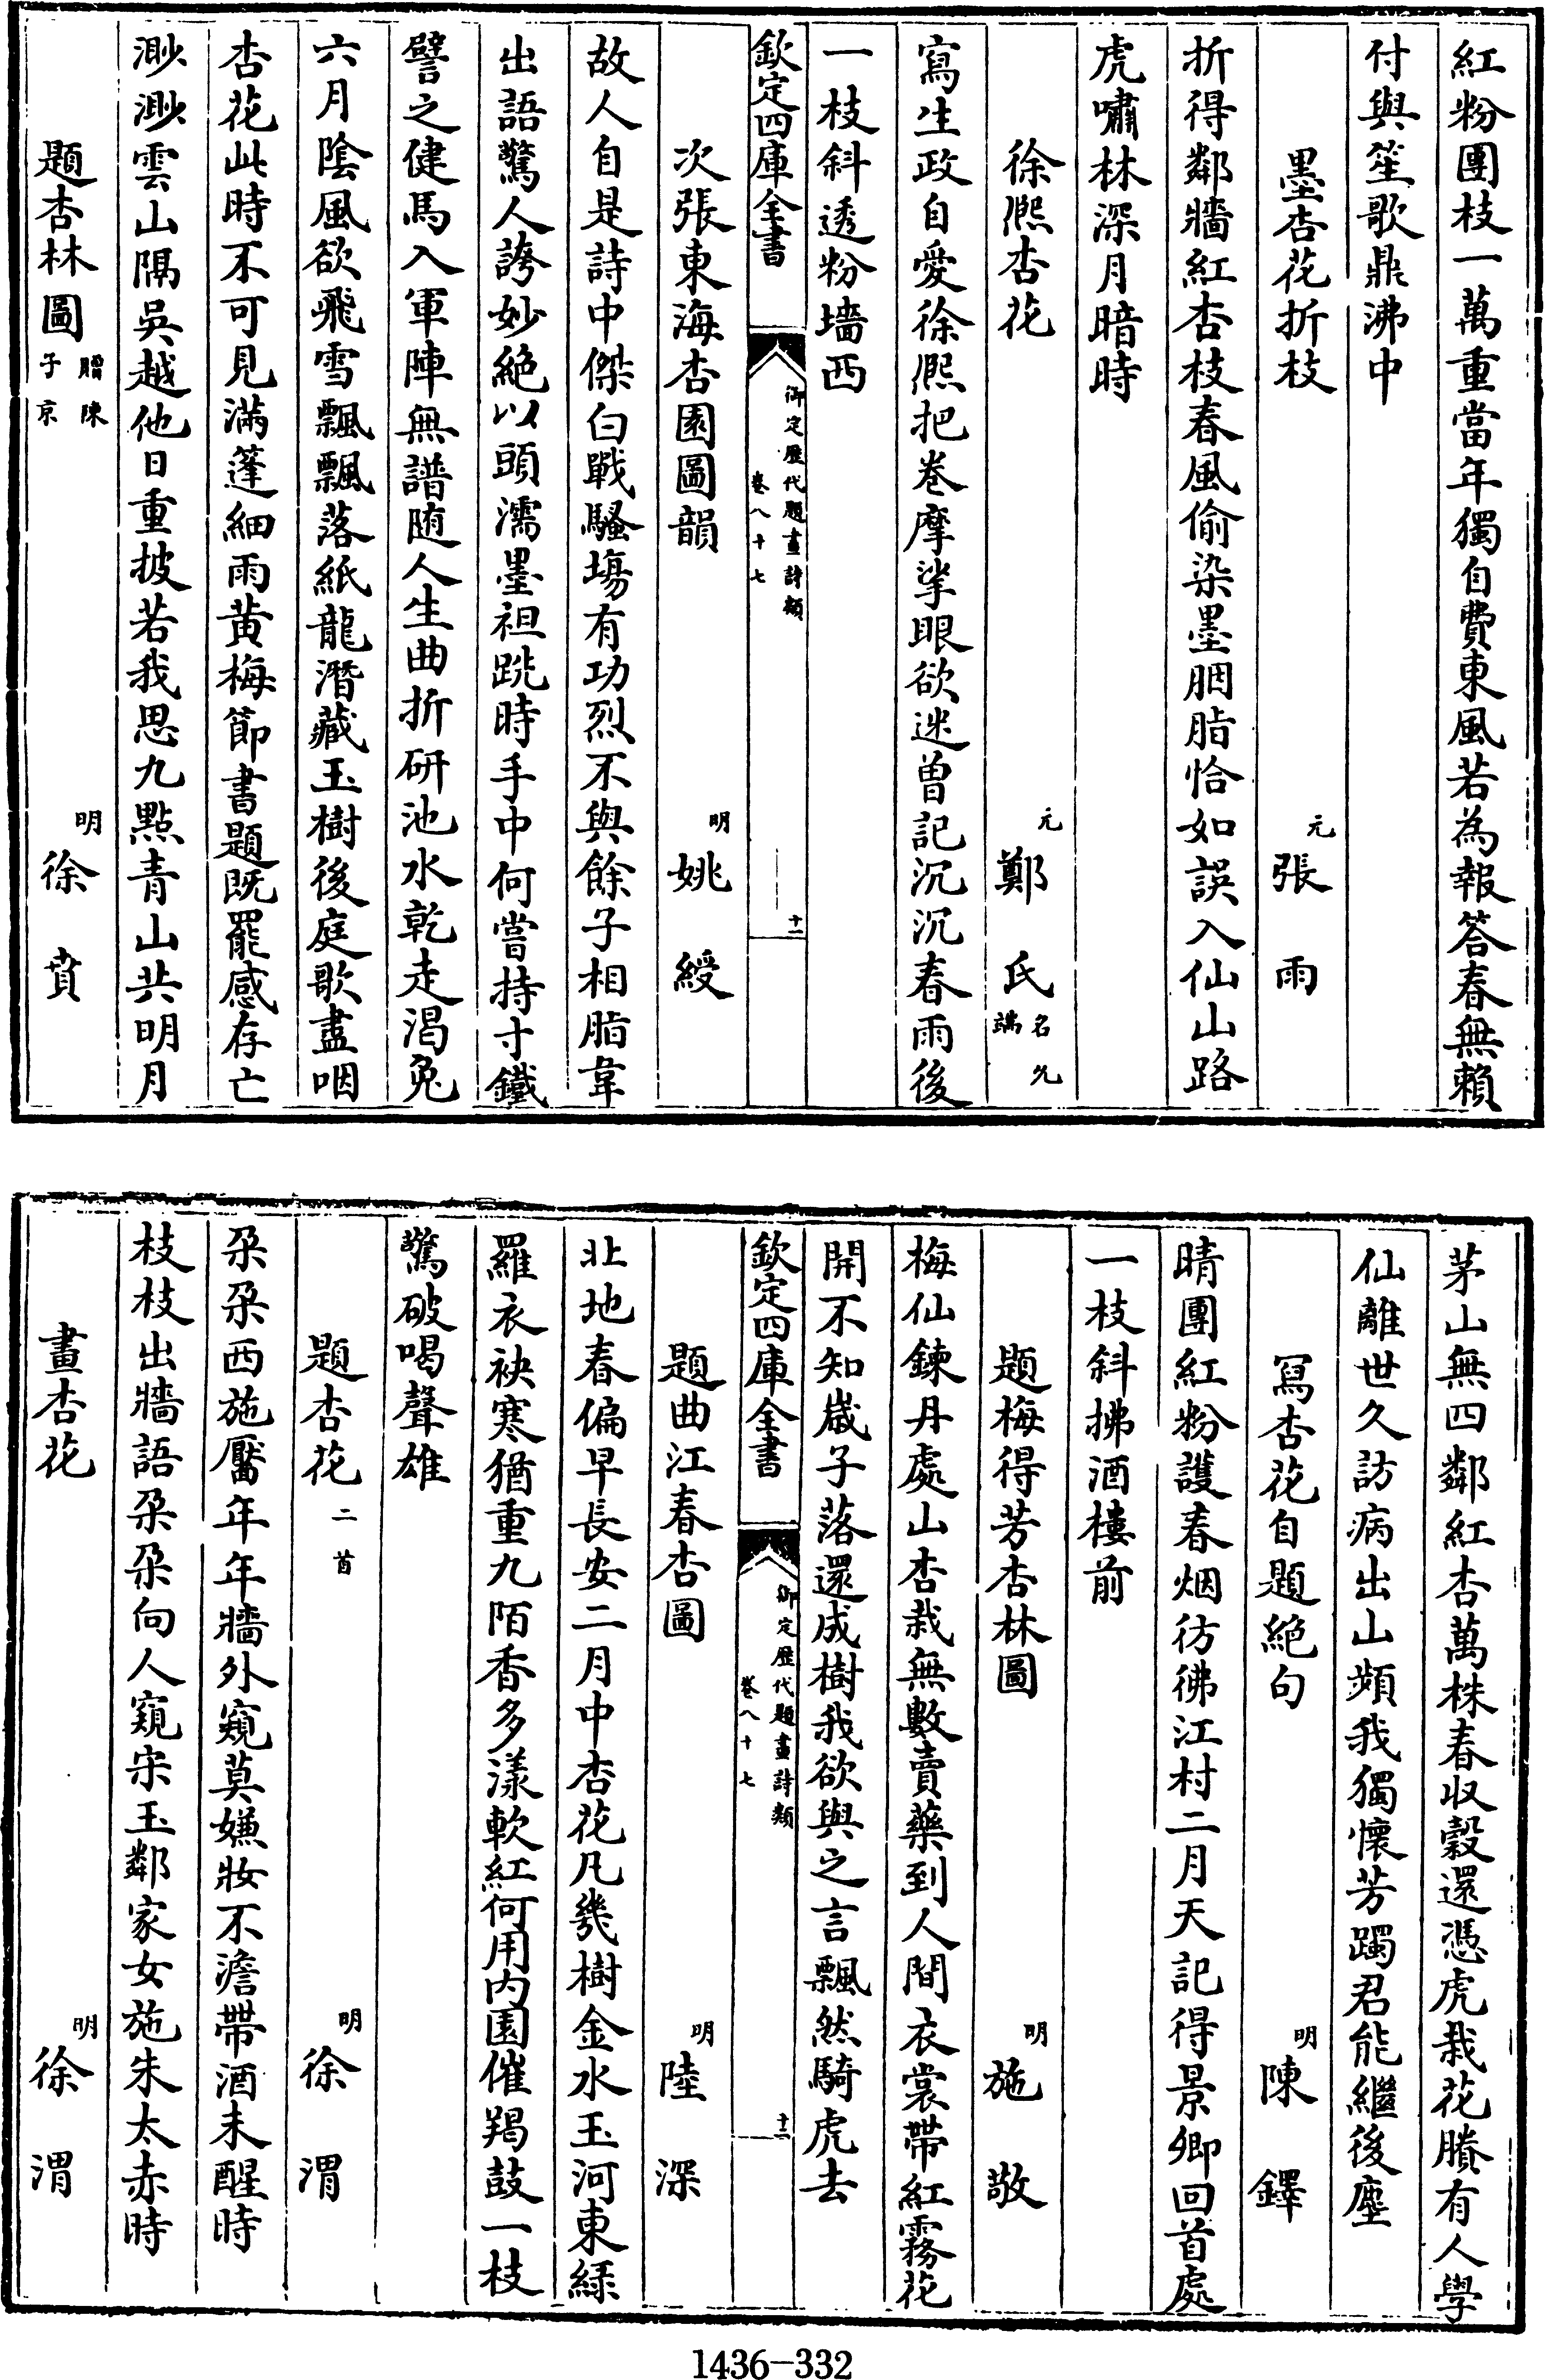 紅粉團枝一萬重當年獨自費東風若為報答春無賴
付與笙歌鼎沸中
墨杏花折枝 元 張雨
折得鄰牆紅杏枝春風偷染墨胭脂恰如誤入仙山路
虎嘯林深月暗時
徐熈杏花 元 鄭氏 名允端
寫生政自愛徐熈把卷摩挲眼欲迷曽記沉沉春雨後
一枝斜透粉墻西
欽定四庫全書 御定歴代題畫詩類 卷八十七 十一
次張東海杏園圖韻 明 姚綬
故人自是詩中傑白戰騷塲有功烈不與餘子相脂韋
出語驚人誇妙絶以頭濡墨袒跣時手中何嘗持寸鐵
譬之健馬入軍陣無譜随人生曲折研池水乾走渴兔
六月陰風欲飛雪飄飄落紙龍潛藏玉樹後庭歌盡咽
杏花此時不可見滿蓬細雨黄梅節書題既罷感存亡
渺渺雲山隔吳越他日重披若我思九點青山共明月
題杏林圖 贈陳子京 明 徐賁
茅山無四鄰紅杏萬株春收穀還憑虎栽花賸有人學
仙離世久訪病出山頻我獨懷芳躅君能繼後塵
冩杏花自題絶句 明 陳鐸
晴團紅粉護春烟彷彿江村二月天記得景卿回首處
一枝斜拂酒樓前
題梅得芳杏林圖 明 施敬
梅仙鍊丹處山杏栽無數賣藥到人間衣裳帶紅霧花
開不知嵗子落還成樹我欲與之言飄然騎虎去
欽定四庫全書 御定歴代題畫詩類 卷八十七 十二
題曲江春杏圖 明 陸深
北地春偏早長安二月中杏花凡幾樹金水玉河東緑
羅衣袂寒猶重九陌香多漾軟紅何用内園催羯鼓一枝
驚破喝聲雄
題杏花 二首 明 徐渭
朶朶西施靨年年牆外窺莫嫌妝不澹帶酒未醒時
枝枝出牆語朶朶向人窺宋玉鄰家女施朱太赤時
畫杏花 明 徐渭
1436-332